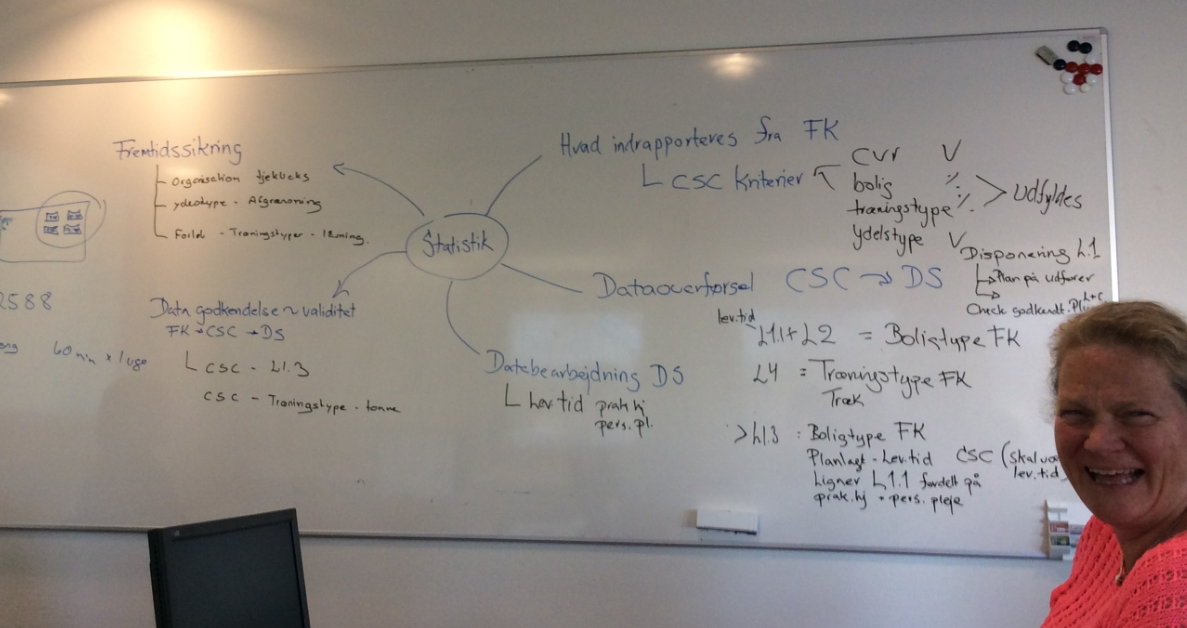 Fremtidssikring
Organisation tjekliste
ydelsestype - Afgrænsning
- Træningstyper -
Statistik
Hvad indrapporteres fra FK
CSC Kriterier
CVR V
bolig %
træningstype %
ydelstype V
Udfyldes
Dataoverførsel CSC → DS
Disponering L1.1
Plan på udfører
Check godkendt.
lev.tid
L1.1 + L2 = Boligtype FK
L4 = Træningstype FK
Træk
> L1.3 : Boligtype FK
Planlagt - Lev.tid CSC (skal
lev.tid
Ligner L1.1 fordelt på
prak.hj + pers. pleje
Databearbejdning DS
Lev.tid prak hj
pers. pl.
Data godkendelse ~ validitet
FK → CSC → DS
CSC - L1.3
CSC - Træningstype - tomme
2588
60 min x 1 uge